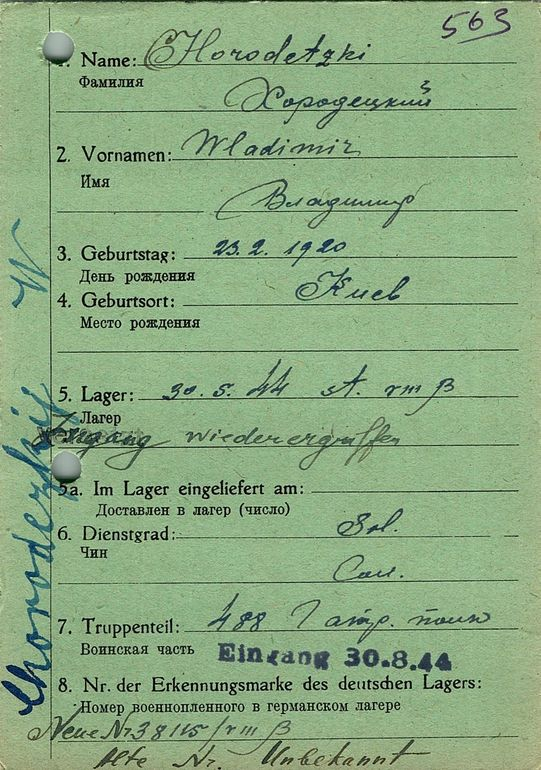 563
1. Name: CHorodetzki
Фамилия
Хородецкий
2. Vornamen: Wladimir
Имя
Владимир
3. Geburtstag: 23. 2. 1920
День рождения
4. Geburtsort: Киев
Место рождения
5. Lager: 30. 5. 44 st. VIII B
Лагер
Zugang wiederergriffen
5a. Im Lager eingeliefert am:
Доставлен в лагер (число)
6. Dienstgrad: Sol.
Чин
Сол.
7. Truppenteil: 488 полк
Воинская часть
Eingang 30.8.44
8. Nr. der Erkennungsmarke des deutschen Lagers:
Номер военнопленного в германском лагере
Neue Nr 38115/VIII B
Alte Nr. Unbekannt
Chorodezkij W